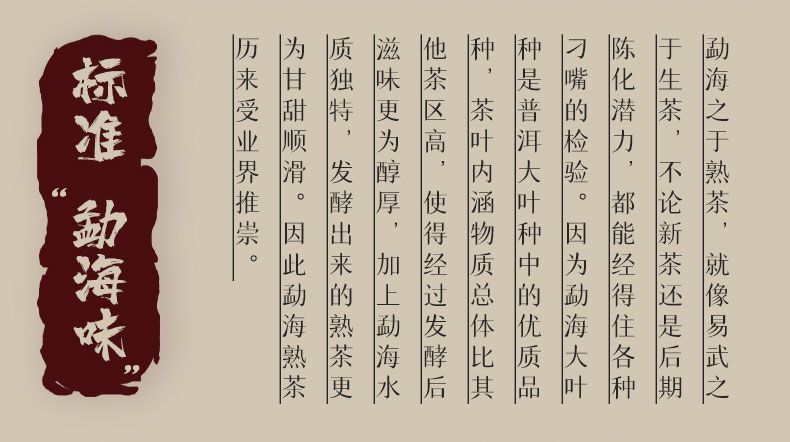 勐海之于熟茶，就像易武之
于生茶，不论新茶还是后期
陈化潜力，都能经得住各种
刁嘴的检验。因为勐海大叶
种是普洱大叶种中的优质品
种，茶叶内涵物质总体比其
他茶区高，使得经过发酵后
滋味更为醇厚，加上勐海水
质独特，发酵出来的熟茶更
为甘甜顺滑。因此勐海熟茶
历来受业界推崇。
标准“勐海味”